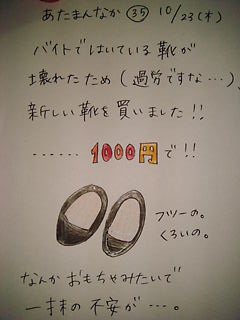 あたまんなか ㉟ 10/23(木)
バイトではいている靴が
壊れたため(過労ですな…)、
新しい靴を買いました!!
…… 1000円で!!
フツーの。
くろいの。
なんかおもちゃみたいで
一抹の不安が…。